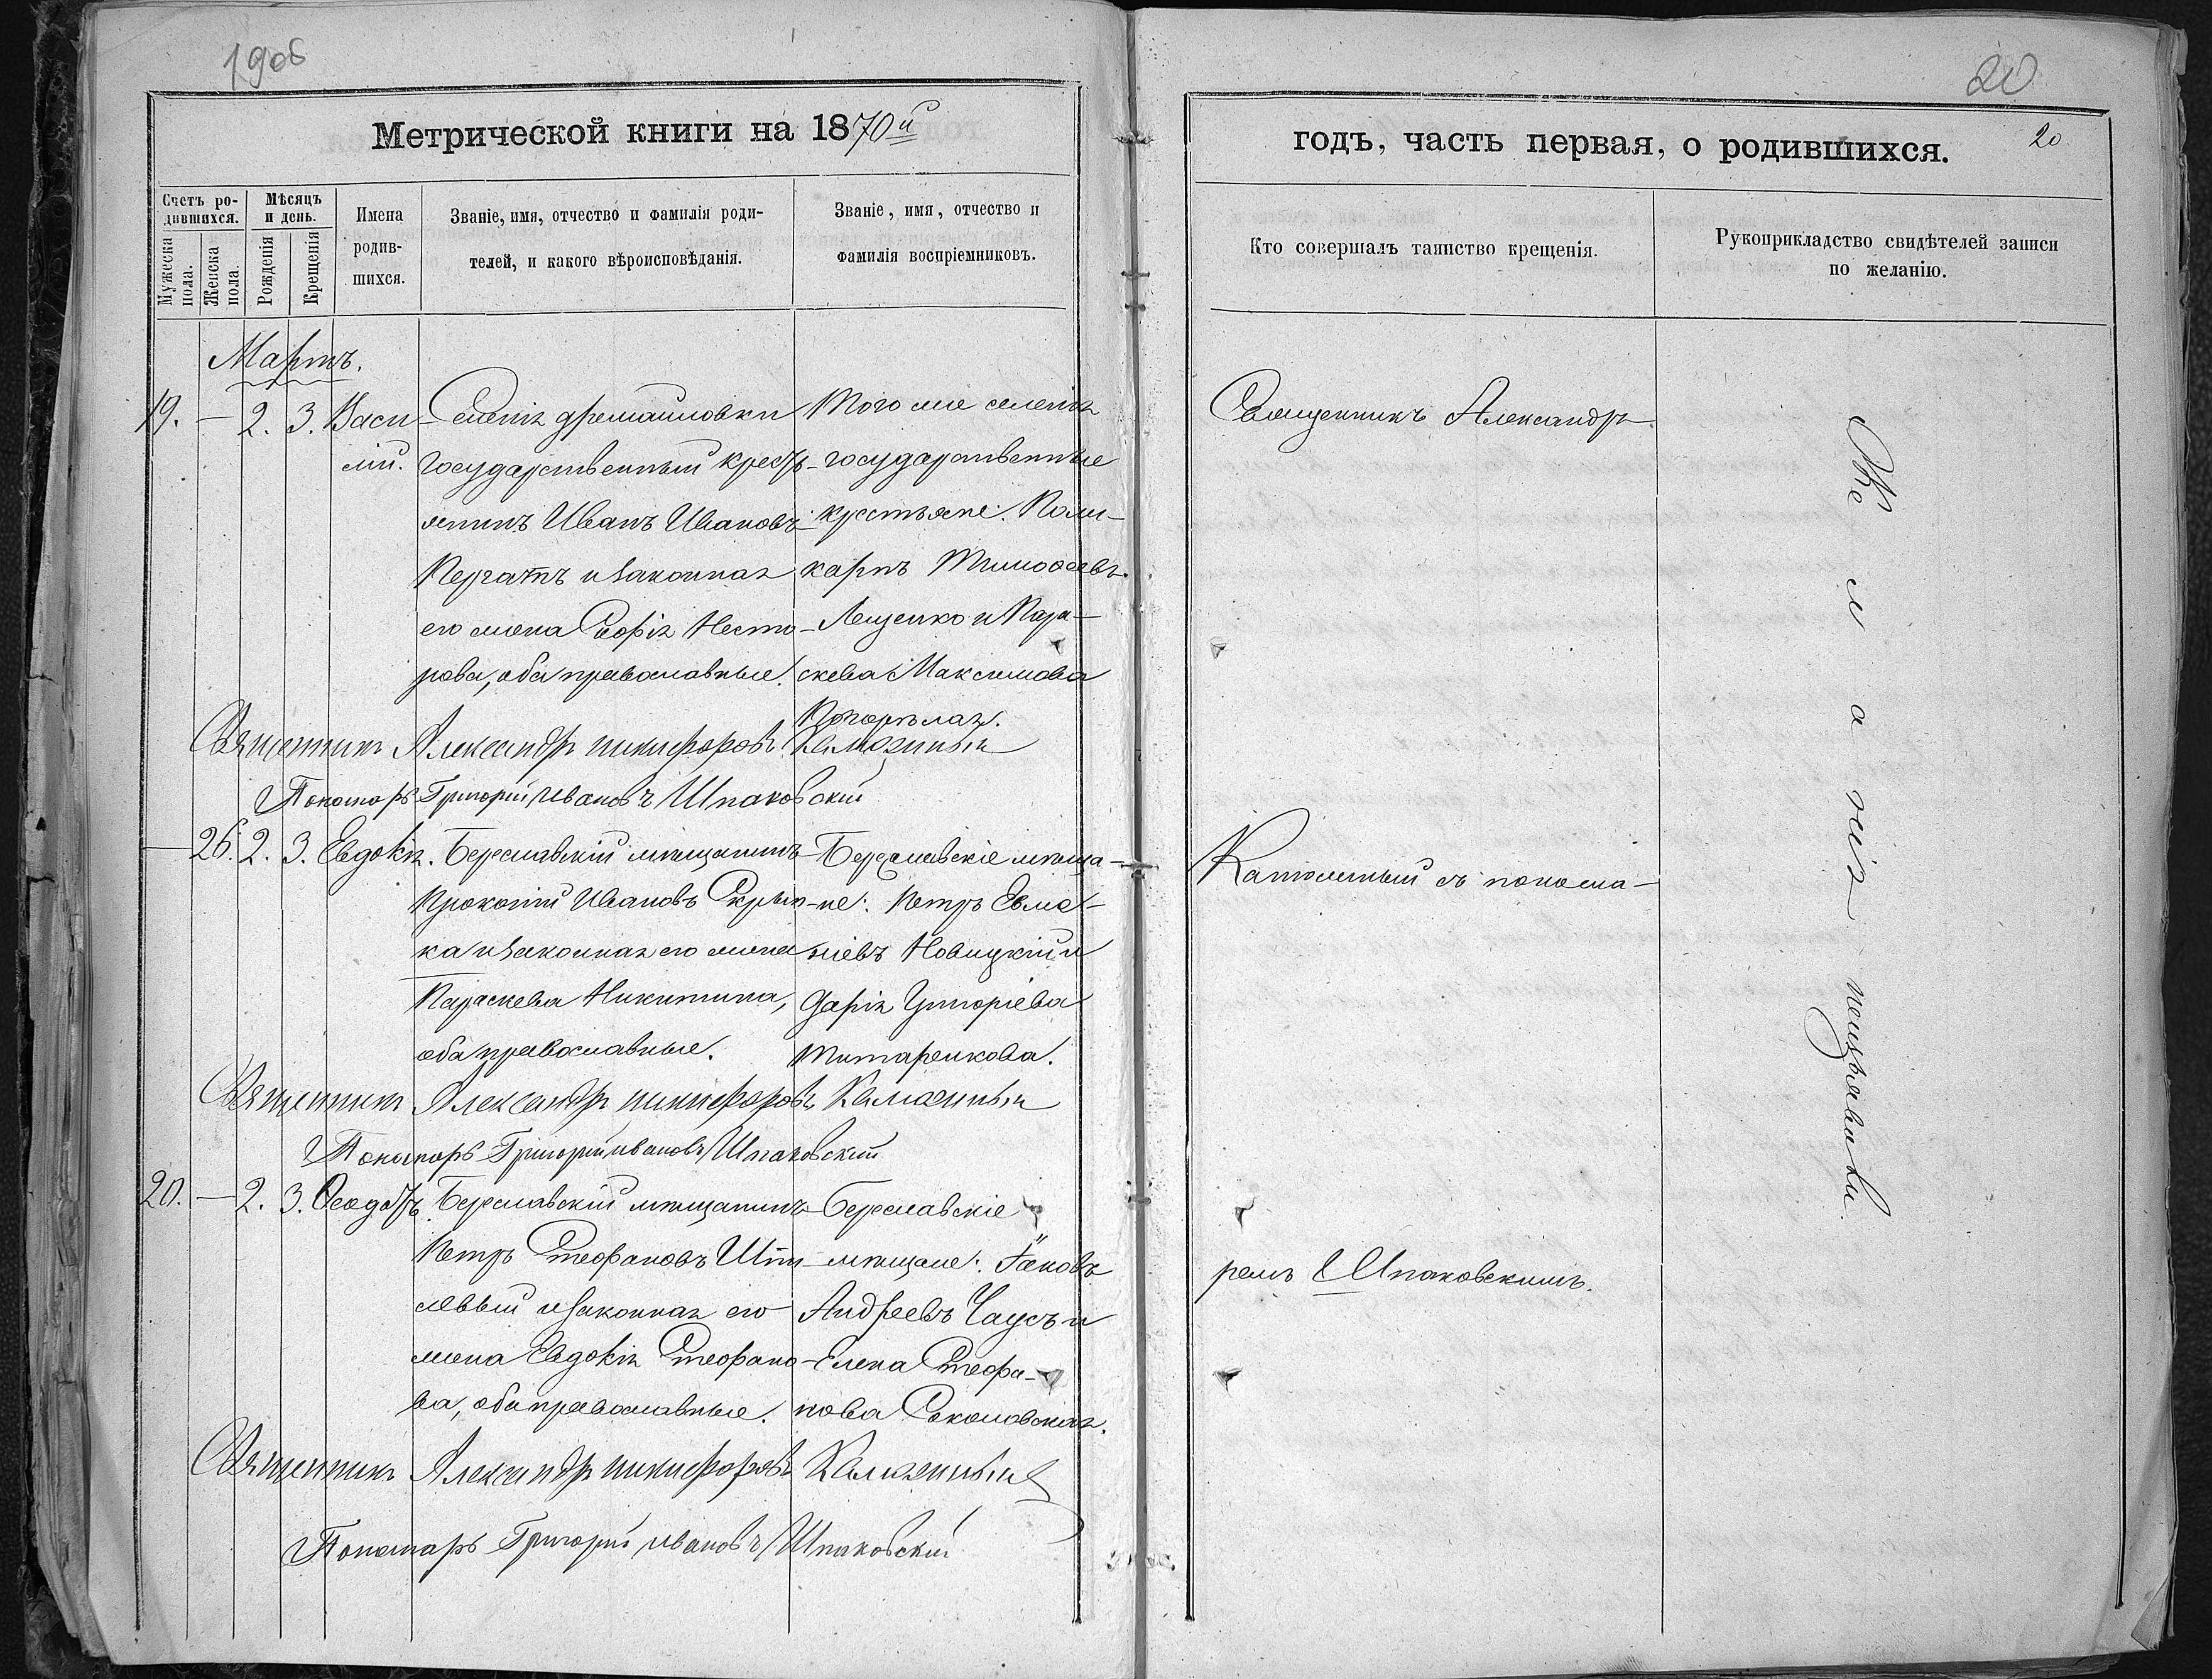 190б
Метрической книги на 1870й
Счетъ ро-
дившихся.
Мѣсяцъ
и день.
Мужеска
пола.
Женска
пола.
Рожденія
Крещенія
Имена
родив-
шихся.
Званіе, имя, отчество и фамилія роди-
телей, и какого вѣроисповѣданія.
Званіе, имя, отчество и
фамилія воспріемниковъ.
Мартъ.
19. — 2. 3. Васи-
лій.
Селенія
государственный кресть-
янинъ Иванъ Ивановъ
и законная
его жена Софія Несто-
рова, оба православные.
Того же селенія
государственные
крестьяне: Поли-
карпъ Тимофеевъ
Лещенко и Пара-
скева Максимова
Погорѣлая.
Священникъ Александръ Никифоровъ
Пономарь Григорій Ивановъ Шпаковскій
— 26. 2. 3. Евдокія.
Бериславскій мѣщанинъ
Прокопій Ивановъ Скрып-
ка и законная его жена
Параскева Никитина,
оба православные.
Бериславскіе мѣща-
не: Петръ
Новицкій и
Дарія Григоріева
Титаренкова.
Священникъ Александръ Никифоровъ
Пономарь Григорій Ивановъ Шпаковскій
20. — 2. 3. Ѳеодоръ
Бериславскій мѣщанинъ
Петръ Стефановъ
и законная его
жена Евдокія Стефано-
ва, оба православные.
Бериславскіе
мѣщане: Іаковъ
Андреевъ Чаусъ и
Елена Стефа-
нова Соколовская.
Священникъ Александръ Никифоровъ
Пономарь Григорій Ивановъ Шпаковскій
20
годъ, часть первая, о родившихся.
20
Кто совершалъ таинство крещенія.
Рукоприкладство свидѣтелей записи
по желанію.
Священникъ Александръ
съ понома-
ремъ Шпаковскимъ.
Желанія неизъявили.